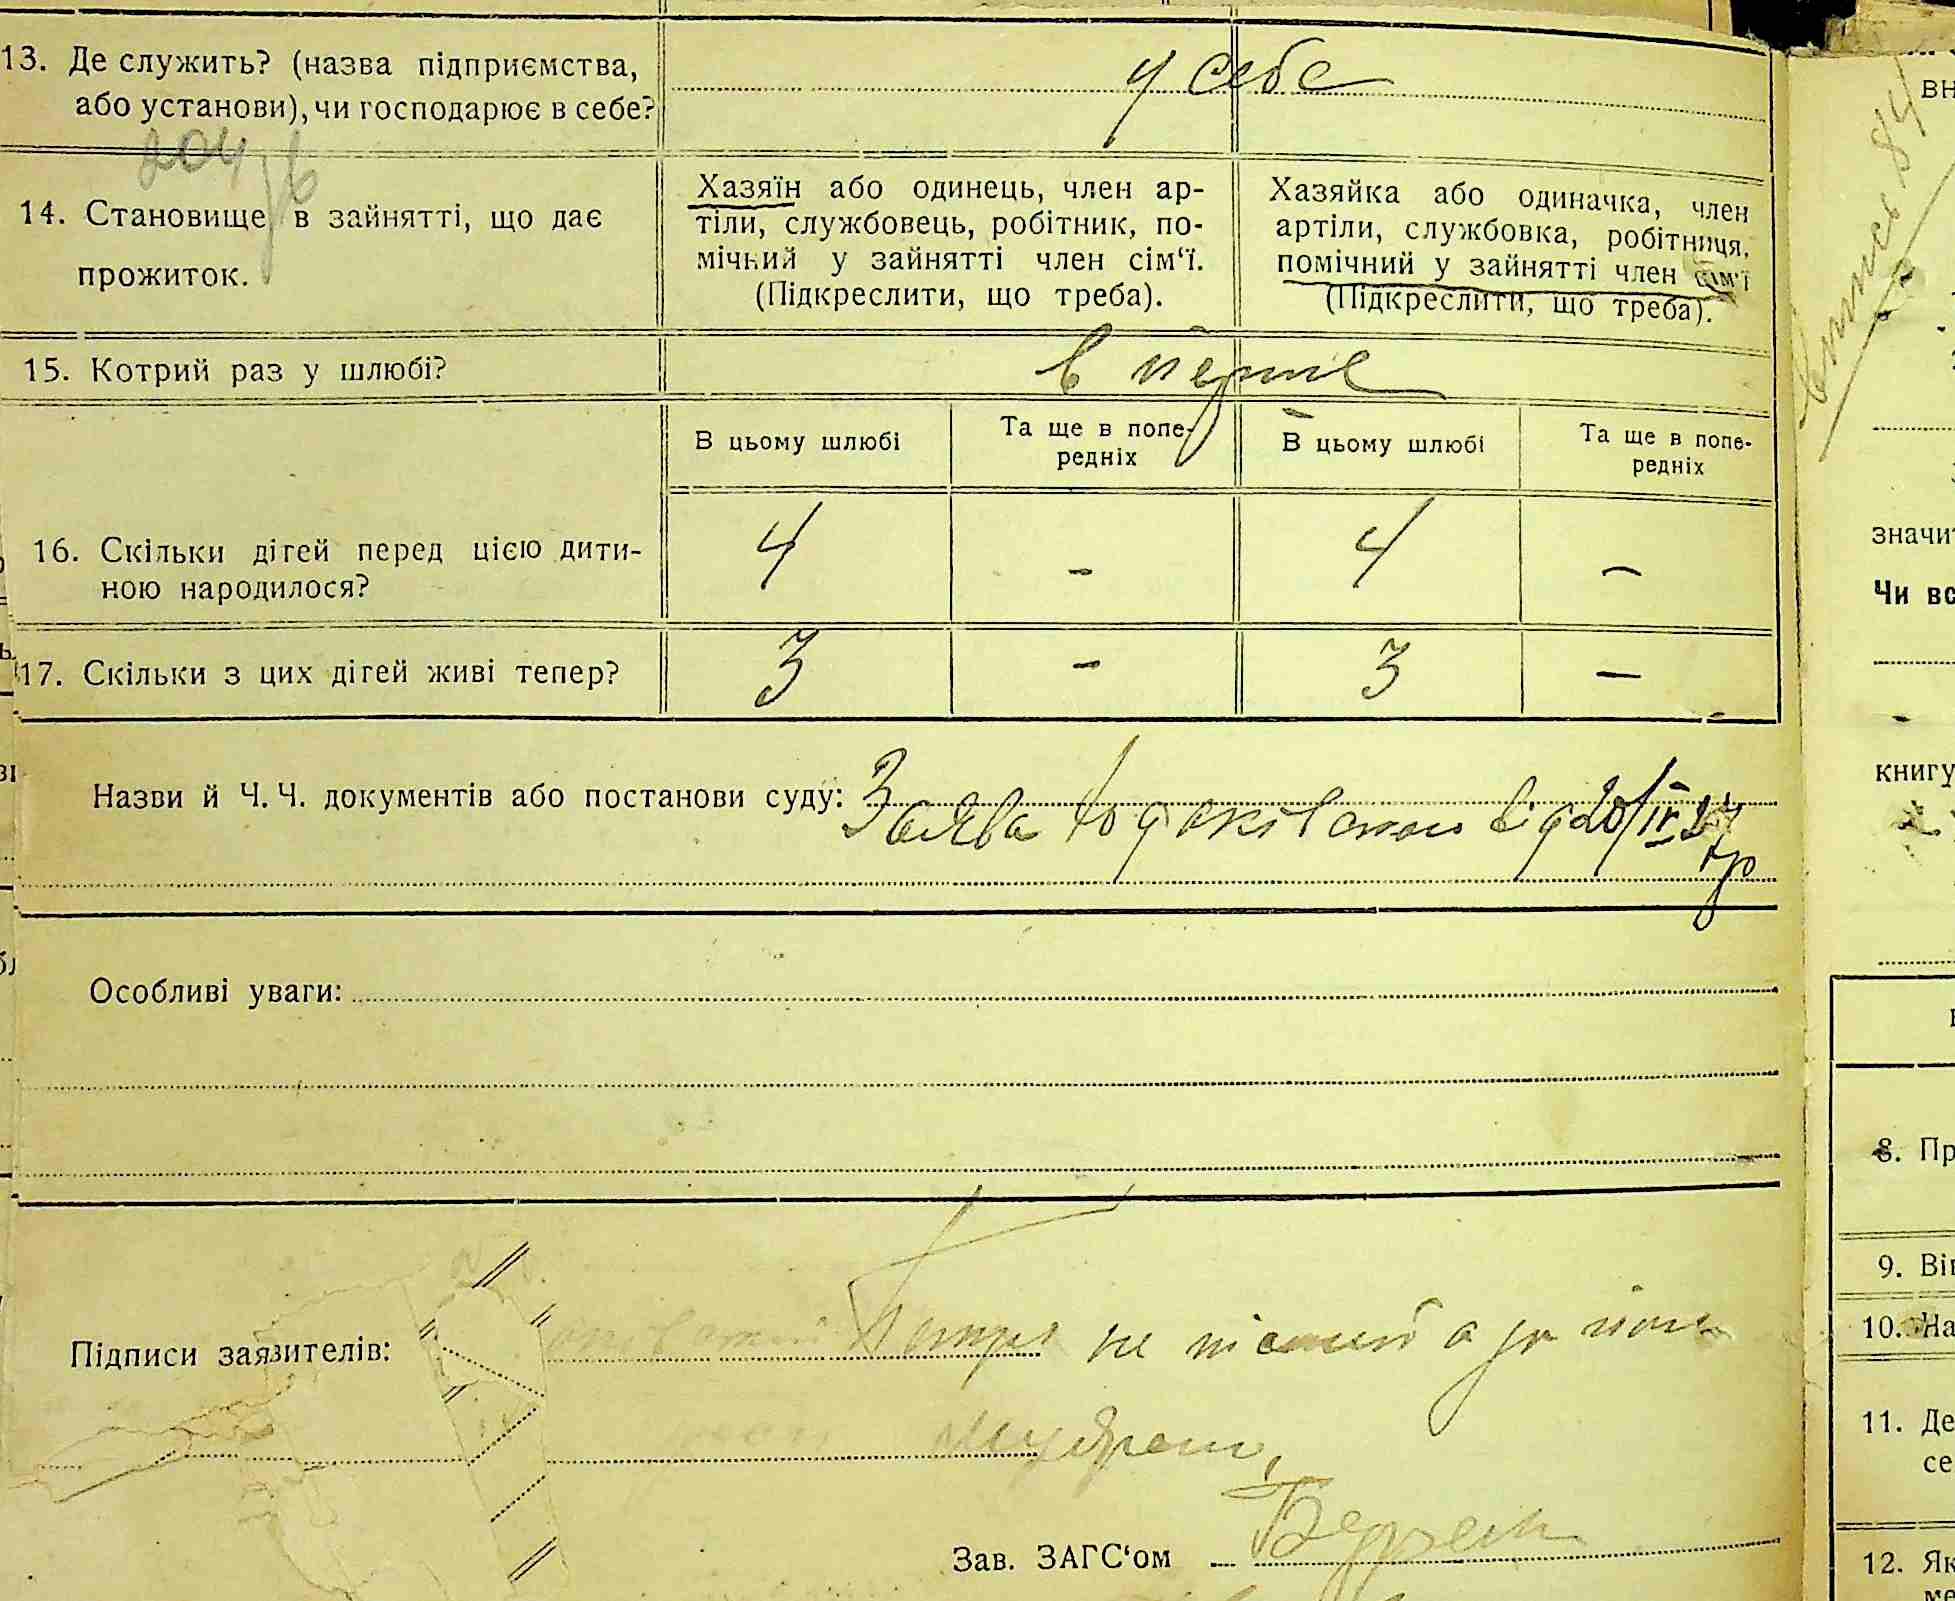 13. Де служить? (назва підприємства,
або установи), чи господарює в себе?
у себе
204
14. Становище в зайнятті, що дає
прожиток.
Хазяїн або одинець, член ар-
тіли, службовець, робітник, по-
мічний у зайнятті член сім‘ї.
(Підкреслити, що треба).
Хазяйка або одиначка, член
артіли, службовка, робітниця,
помічний у зайнятті член сім‘ї
(Підкреслити, що треба).
15. Котрий раз у шлюбі?
в перше
В цьому шлюбі
Та ще в попе-
редніх
В цьому шлюбі
Та ще в попе-
редніх
16. Скільки дітей перед цією дити-
ною народилося?
4 - 4 -
17. Скільки з цих дітей живі тепер?
3 - 3 -
Назви й Ч. Ч. документів або постанови суду:
Заява від 20/IV 27
гр
Особливі уваги:
Підписи заявителів:
Петро не а за
Зав. ЗАГС‘ом
вн
значи
Чи вс
книгу
8. Пр
9. Ві
10. На
11. Де
се
12. Як